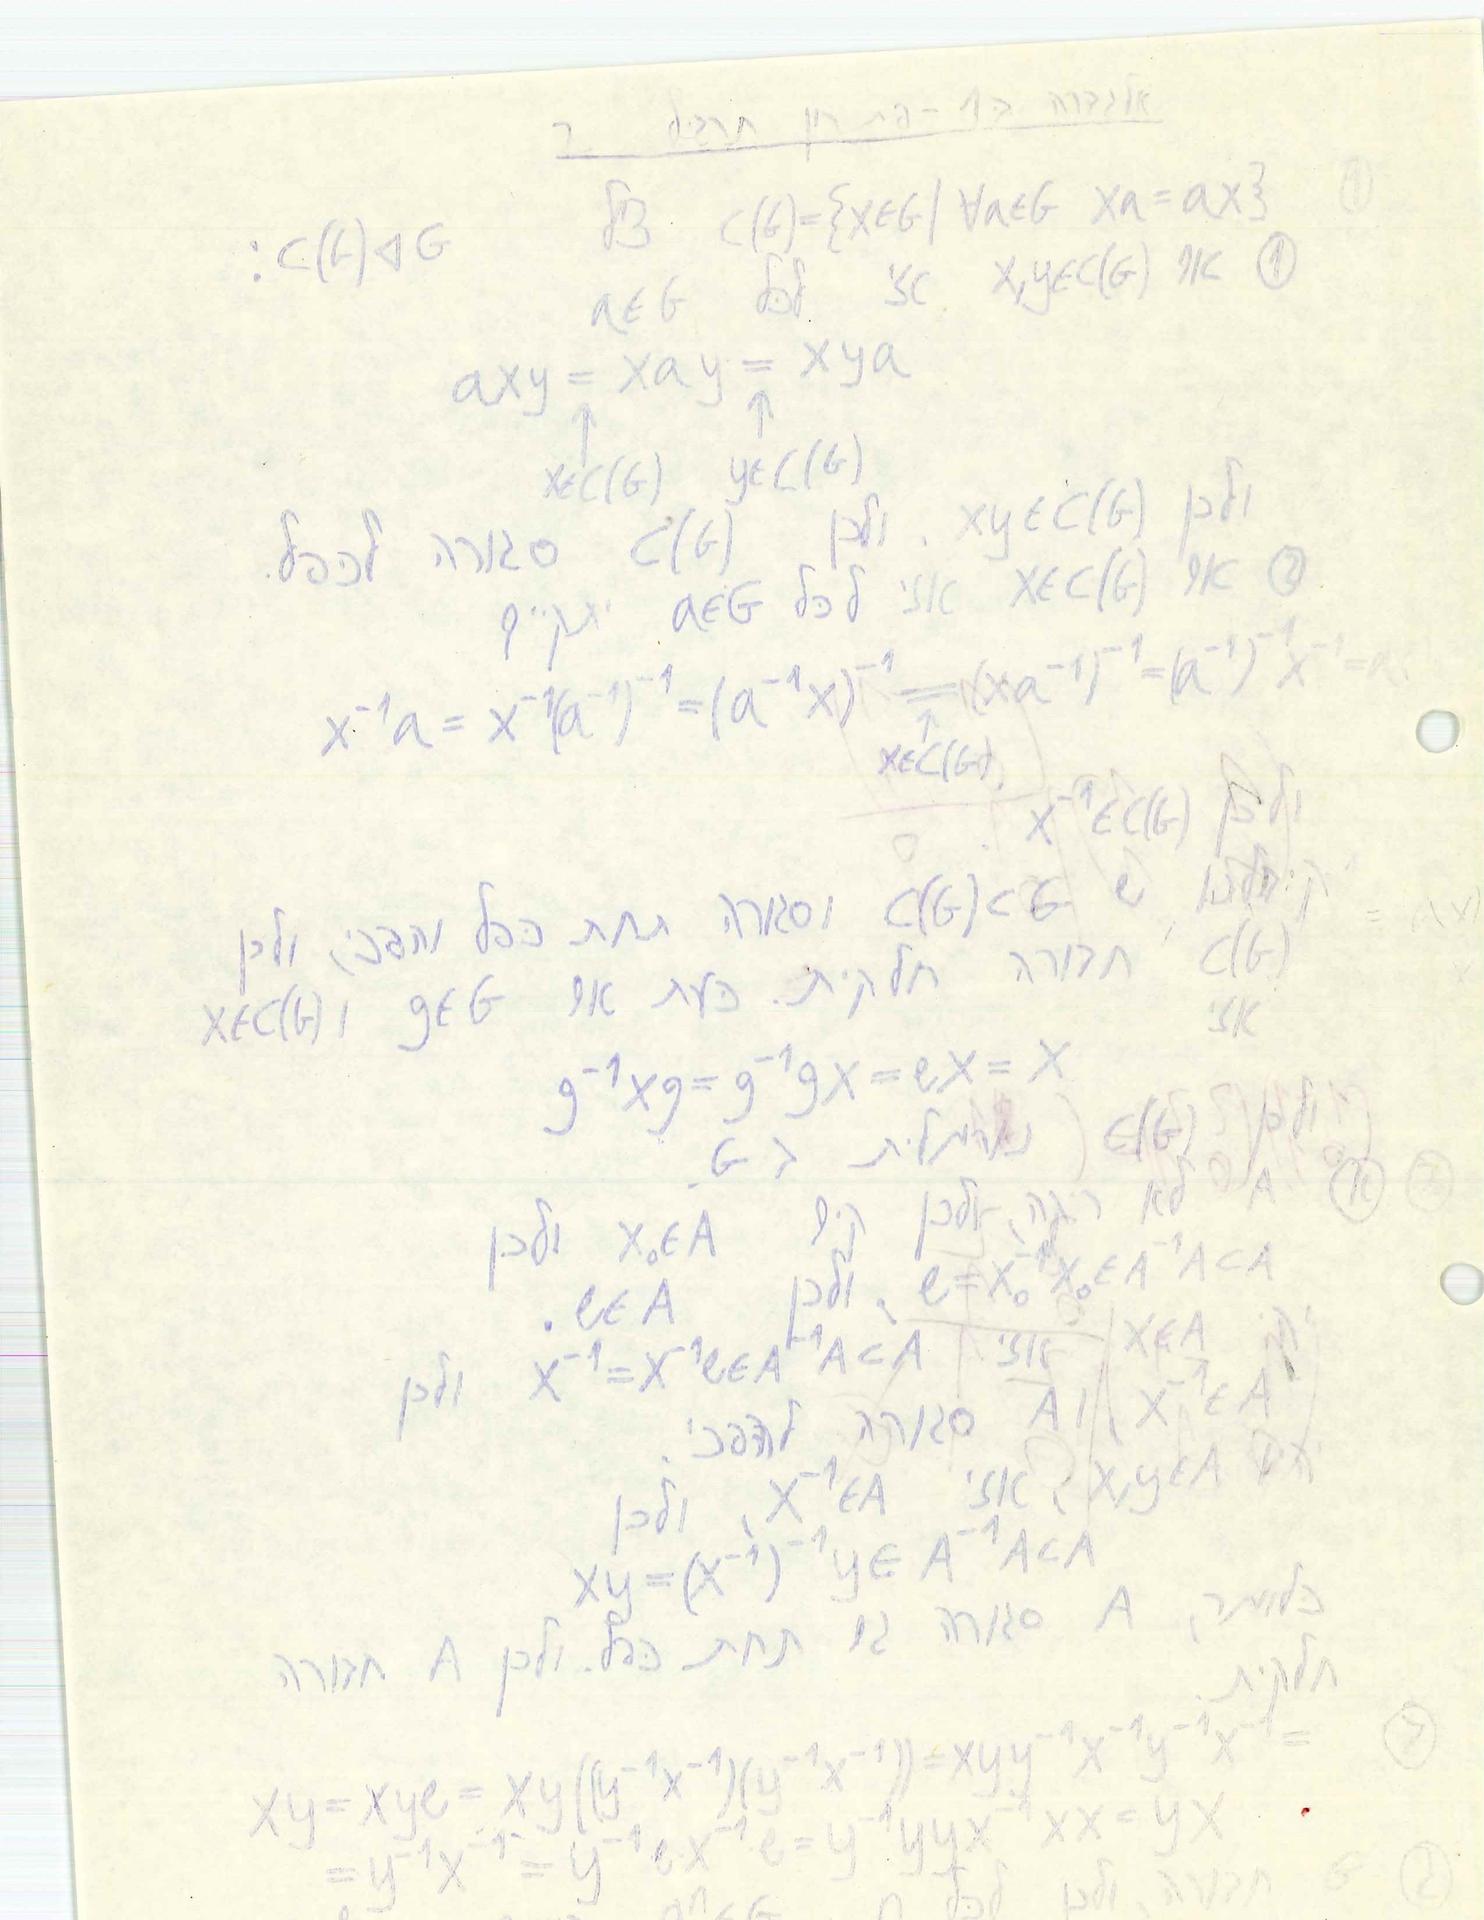 אלגברה ב1 - פתרון תרגיל 2
① C(G)={x∈G| ∀a∈G xa=ax} צ"ל C(G)⊲G:
① אם x,y∈C(G) אזי לכל a∈G
axy = xay = xya
↑ ↑
x∈C(G) y∈C(G)
ולכן xy∈C(G). ולכן C(G) סגורה לכפל.
② אם x∈C(G) אזי לכל a∈G יתקיים
x⁻¹a = x⁻¹(a⁻¹)⁻¹ = (a⁻¹x)⁻¹ = (xa⁻¹)⁻¹ = (a⁻¹)⁻¹x⁻¹ =
↑
x∈C(G)
ולכן x⁻¹∈C(G).
ש C(G)⊂G וסגורה תחת כפל והפכי, ולכן
C(G) חבורה חלקית. כעת אם g∈G ו x∈C(G)
אזי
g⁻¹xg = g⁻¹gx = ex = x
ולכן C(G) נורמלית ב G.
② א A לא ריקה, ולכן קים x₀∈A ולכן
e = x₀⁻¹x₀∈A⁻¹A⊂A, ולכן e∈A.
יהי x∈A אזי x⁻¹=x⁻¹e∈A⁻¹A⊂A ולכן
x⁻¹∈A, ו A סגורה להפכי.
יהיו x,y∈A, אזי x⁻¹∈A, ולכן
xy = (x⁻¹)⁻¹y∈A⁻¹A⊂A
כלומר, A סגורה גם תחת כפל. ולכן A חבורה
חלקית.
xy = xye = xy((y⁻¹x⁻¹)(y⁻¹x⁻¹)) = xyy⁻¹x⁻¹y⁻¹x⁻¹ =
= y⁻¹x⁻¹ = y⁻¹ex⁻¹e = y⁻¹yyx⁻¹xx = yx
G חבורה, ולכן לכל